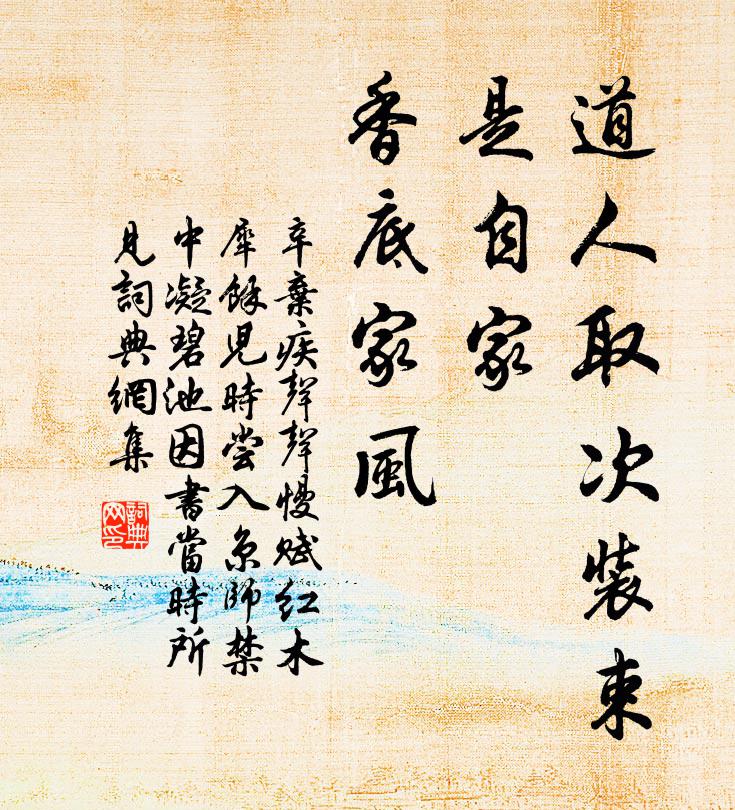 道人取次裝束
是自家
香底家風
辛棄疾聲聲慢賦紅木
犀餘兒時嘗入京師禁
中凝碧池因書當時所
見詞典網集
詞典網印